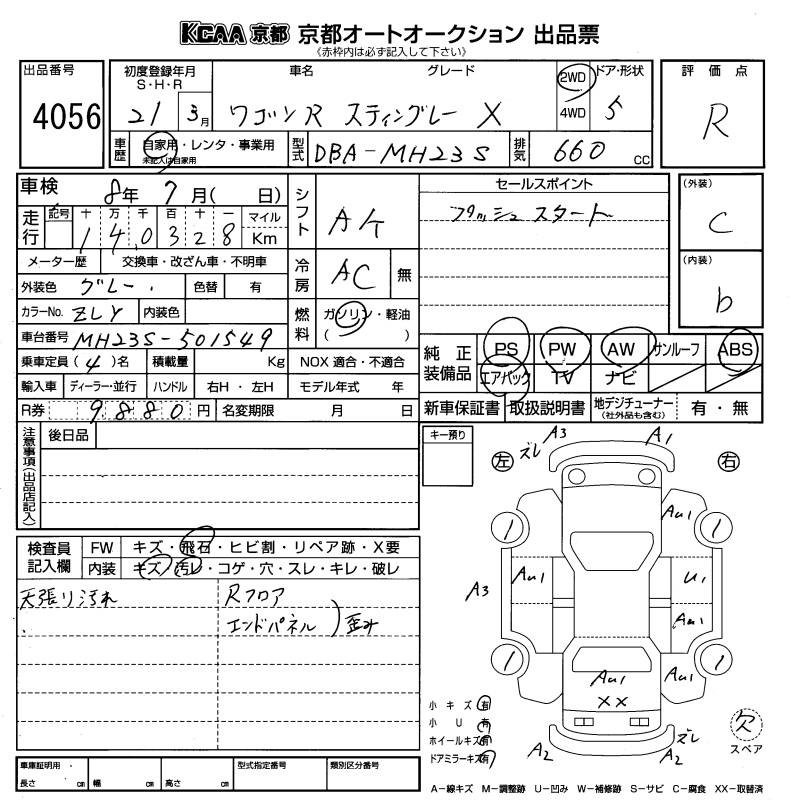 KCAA 京都 京都オートオークション 出品票
《赤枠内は必ず記入して下さい》
出品番号 4056
初度登録年月 S・H・R 21 3月
車名 グレード ワゴンR スティングレー X
2WD 4WD
ドア・形状 5
評価点 R
車歴 自家用・レンタ・事業用 未記入は自家用
型式 DBA-MH23S
排気 660 CC
車検 8年 7月( 日)
シフト AT
セールスポイント
プッシュスタート
(外装) C
(内装) b
走行 記号 十 万 千 百 十 一 マイル Km
1 4,0 3 2 8
メーター歴 交換車・改ざん車・不明車
冷房 AC 無
外装色 グレー 色替 有
カラーNo. ZLY 内装色
燃料 ガソリン・軽油 ( )
車台番号 MH23S-501549
純正装備品 PS PW AW サンルーフ ABS
エアバック TV ナビ
乗車定員 (4)名 積載量 Kg NOX 適合・不適合
輸入車 ディーラー・並行 ハンドル 右H・左H モデル年式 年
新車保証書 取扱説明書 地デジチューナー (社外品も含む) 有・無
R券 9880円 名変期限 月 日
注意事項(出品店記入) 後日品
キー預り
左 右
A3 ズレ A1
AU1
AU1 U1
A3
AU1
AU1 AU1
XX
A2 ズレ A2
欠
スペア
検査員記入欄 FW キズ・飛石・ヒビ割・リペア跡・X要
内装 キズ・汚レ・コゲ・穴・スレ・キレ・破レ
天張り汚れ Rフロア
エンドパネル )歪み
小キズ 有
小U 有
ホイールキズ 有
ドアミラーキズ 有
車庫証明用 長さ cm 幅 cm 高さ cm 型式指定番号 類別区分番号
A-線キズ M-調整跡 U-凹み W-補修跡 S-サビ C-腐食 XX-取替済